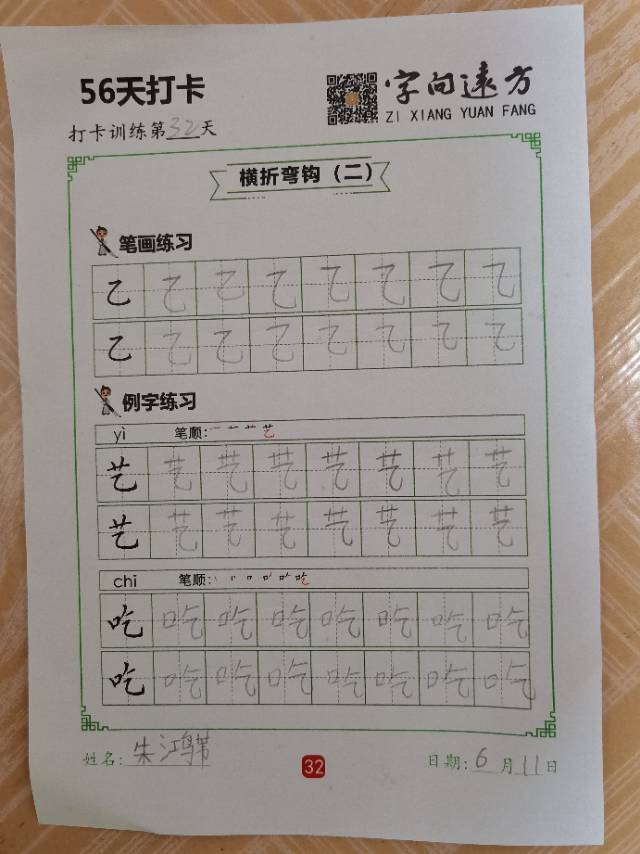 56天打卡
字向远方
ZI XIANG YUAN FANG
打卡训练第32天
横折弯钩（二）
笔画练习
乙 乙 乙 乙 乙 乙 乙 乙
乙 乙 乙 乙 乙 乙 乙 乙
例字练习
yì 笔顺: 一 艹 艹 艺
艺 艺 艺 艺 艺 艺 艺 艺
艺 艺 艺 艺 艺 艺 艺 艺
chī 笔顺:
吃 吃 吃 吃 吃 吃 吃 吃
吃 吃 吃 吃 吃 吃 吃 吃
姓名: 朱鸿
32
日期: 6月11日